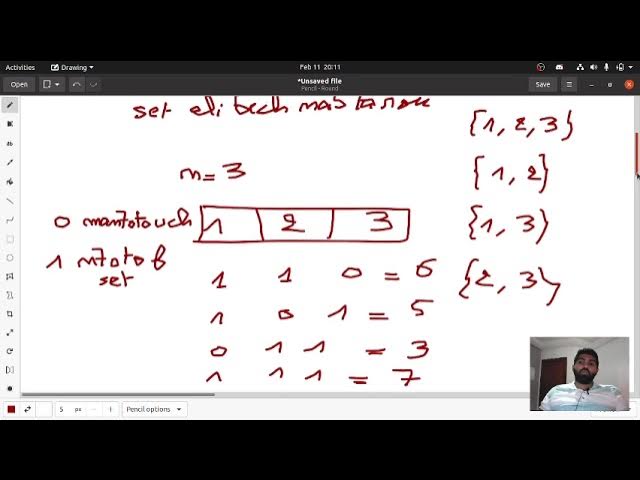 Activities
Drawing
Feb 11 20:11
Open
*Unsaved file
Pencil - Round
Save
set eli bech
{1, 2, 3}
n = 3
{1, 2}
0
1 2 3
{1, 3}
1
set
1 1 0 = 6
{2, 3}
1 0 1 = 5
0 1 1 = 3
1 1 1 = 7
5 px - +
Pencil options